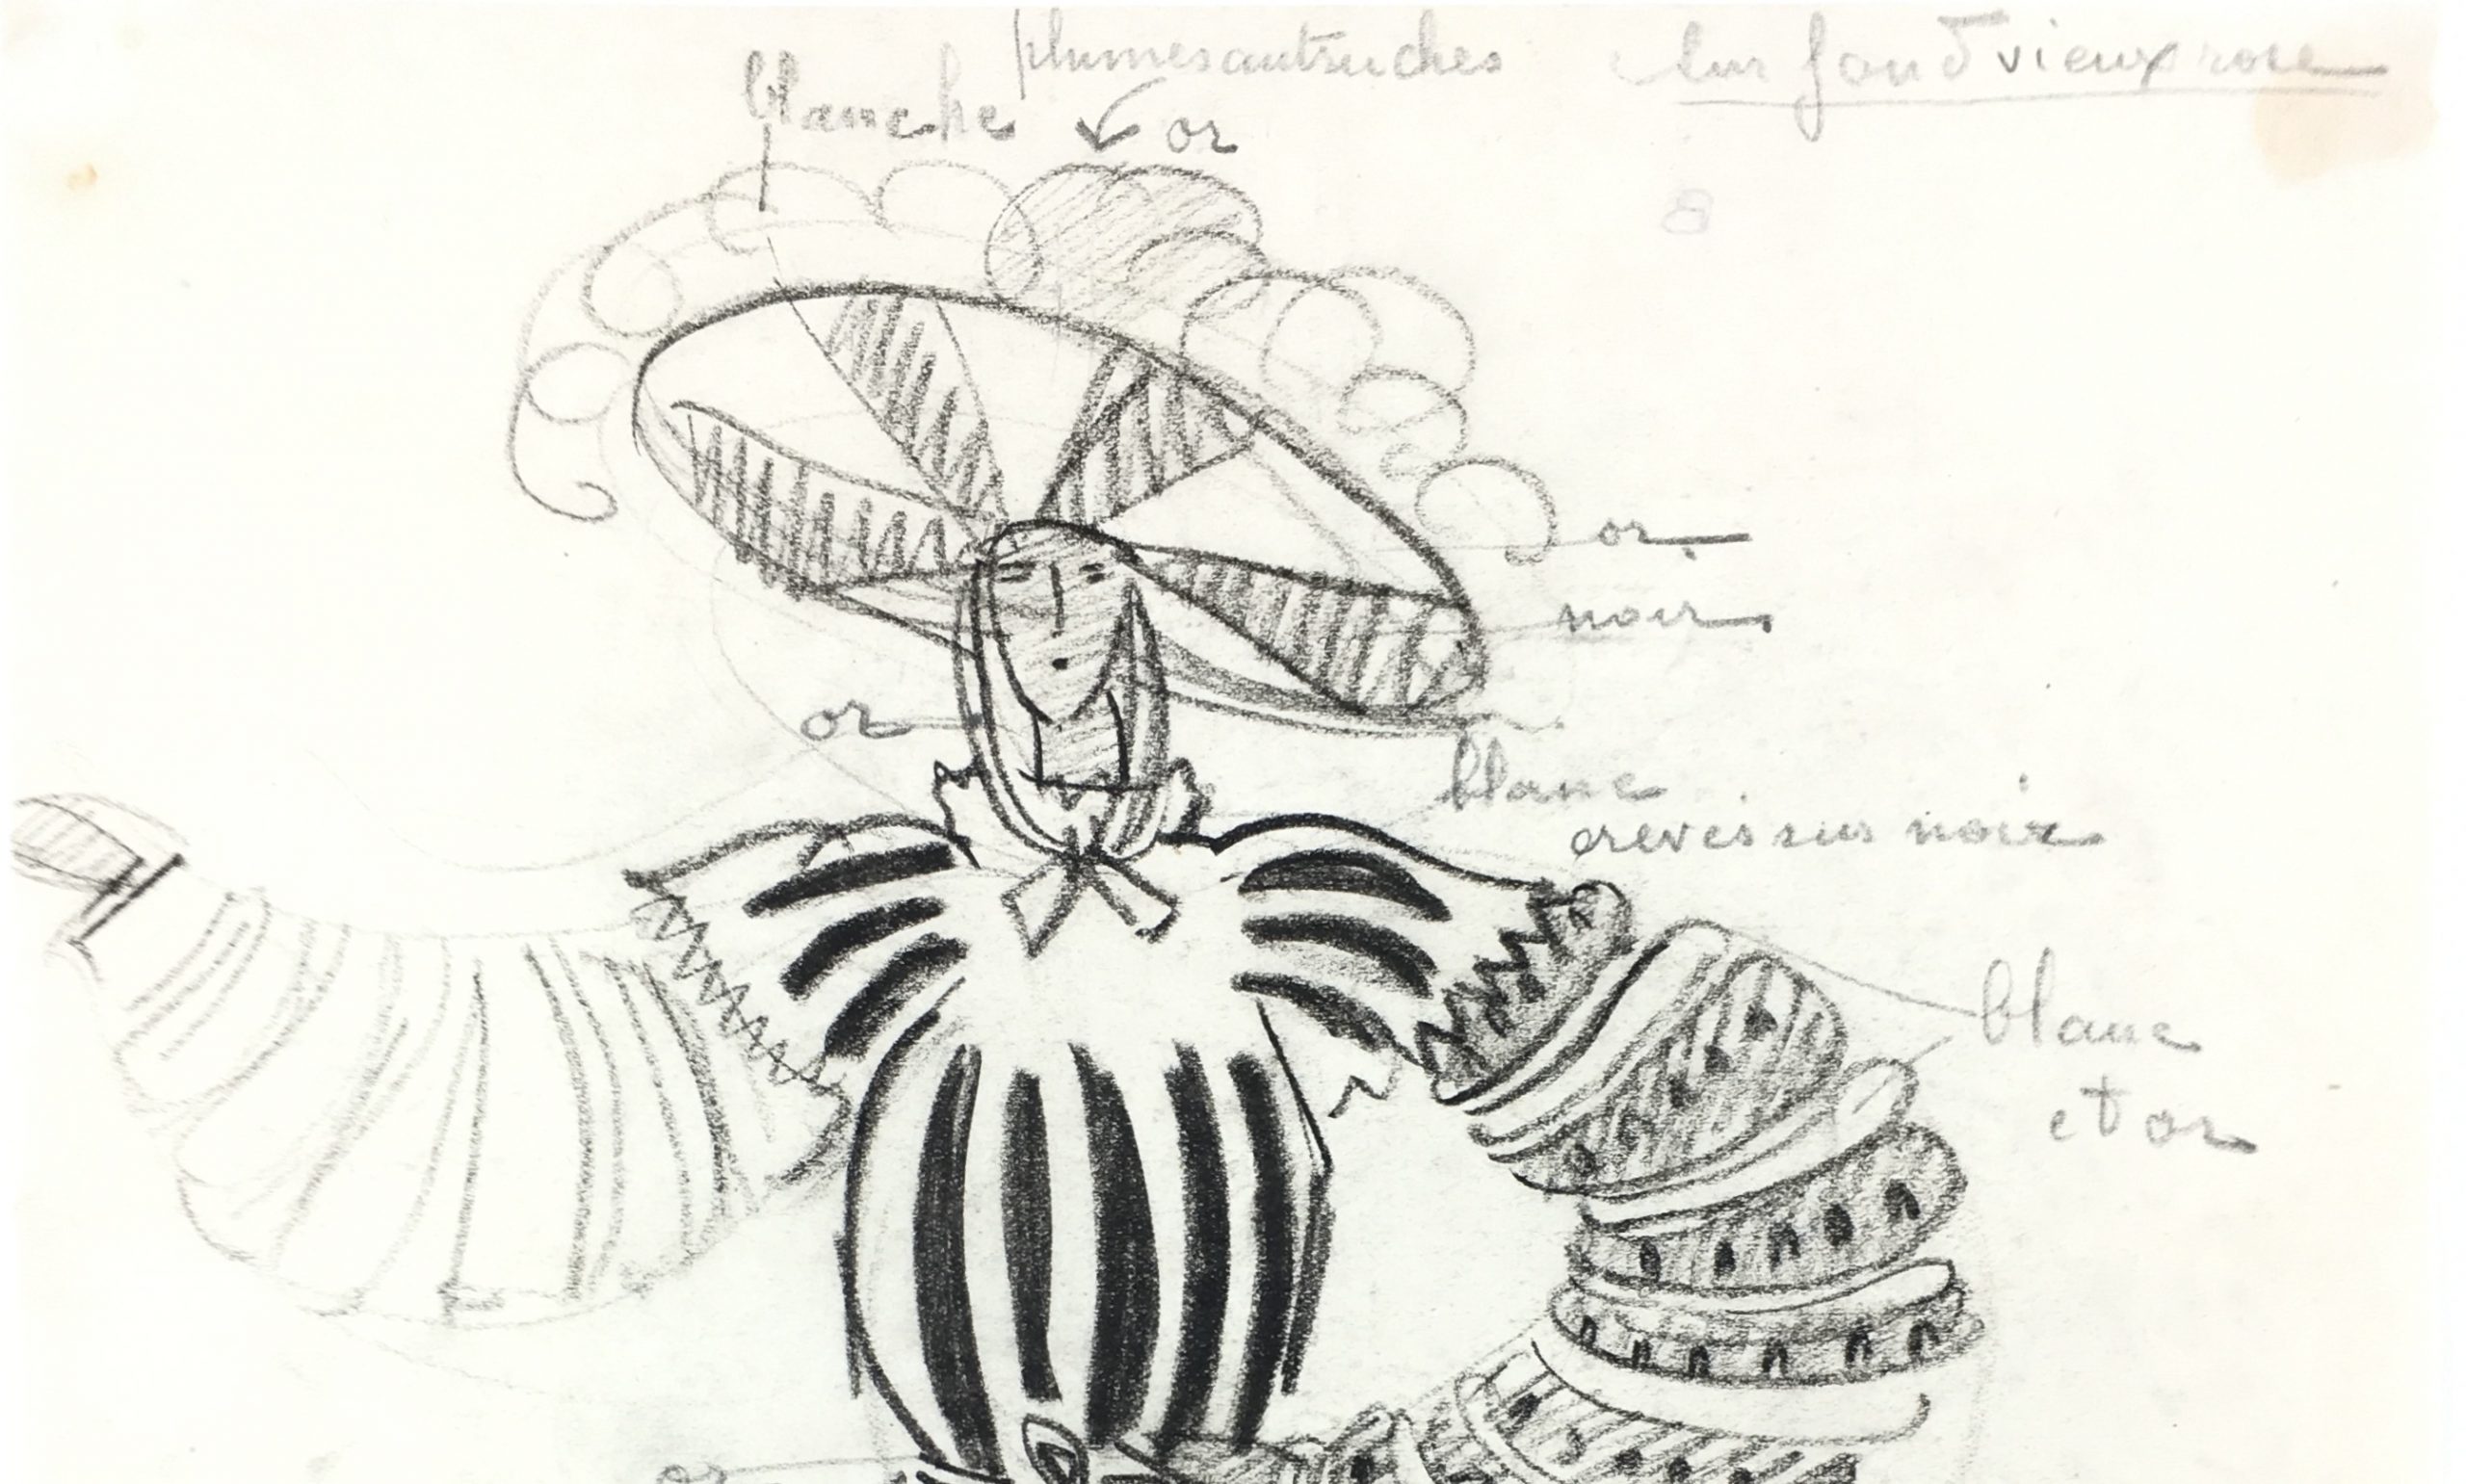 plumes autruches
sur fond vieux rose
blanche
or
or
noir
or
blanc
crevés sur noir
blanc
et or
or